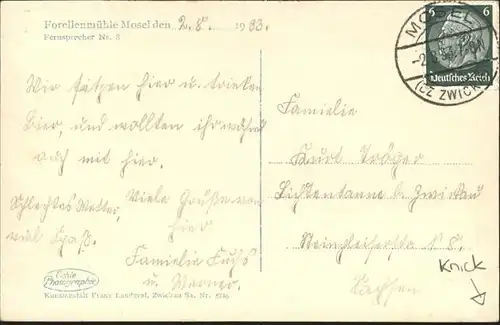 Forellenmühle Mosel den 2.8. 1933.
Fernsprecher Nr. 3
Wir sitzen hier u. trinken
Bier, und wollten ihr währt
auch mit hier.
Schlechtes Wetter,
viel Spaß.
Viele Grüße von
hier
Familie Fuchs
u. Werner.
Echte
Photographie
Kunstanstalt Franz Landgraf, Zwickau Sa. Nr.
MOSEL
(BZ ZWICK
6 6
Deutsches Reich
Familie
Kurt Träger
Lichtentanne b. Zwickau
Sachsen
Knick